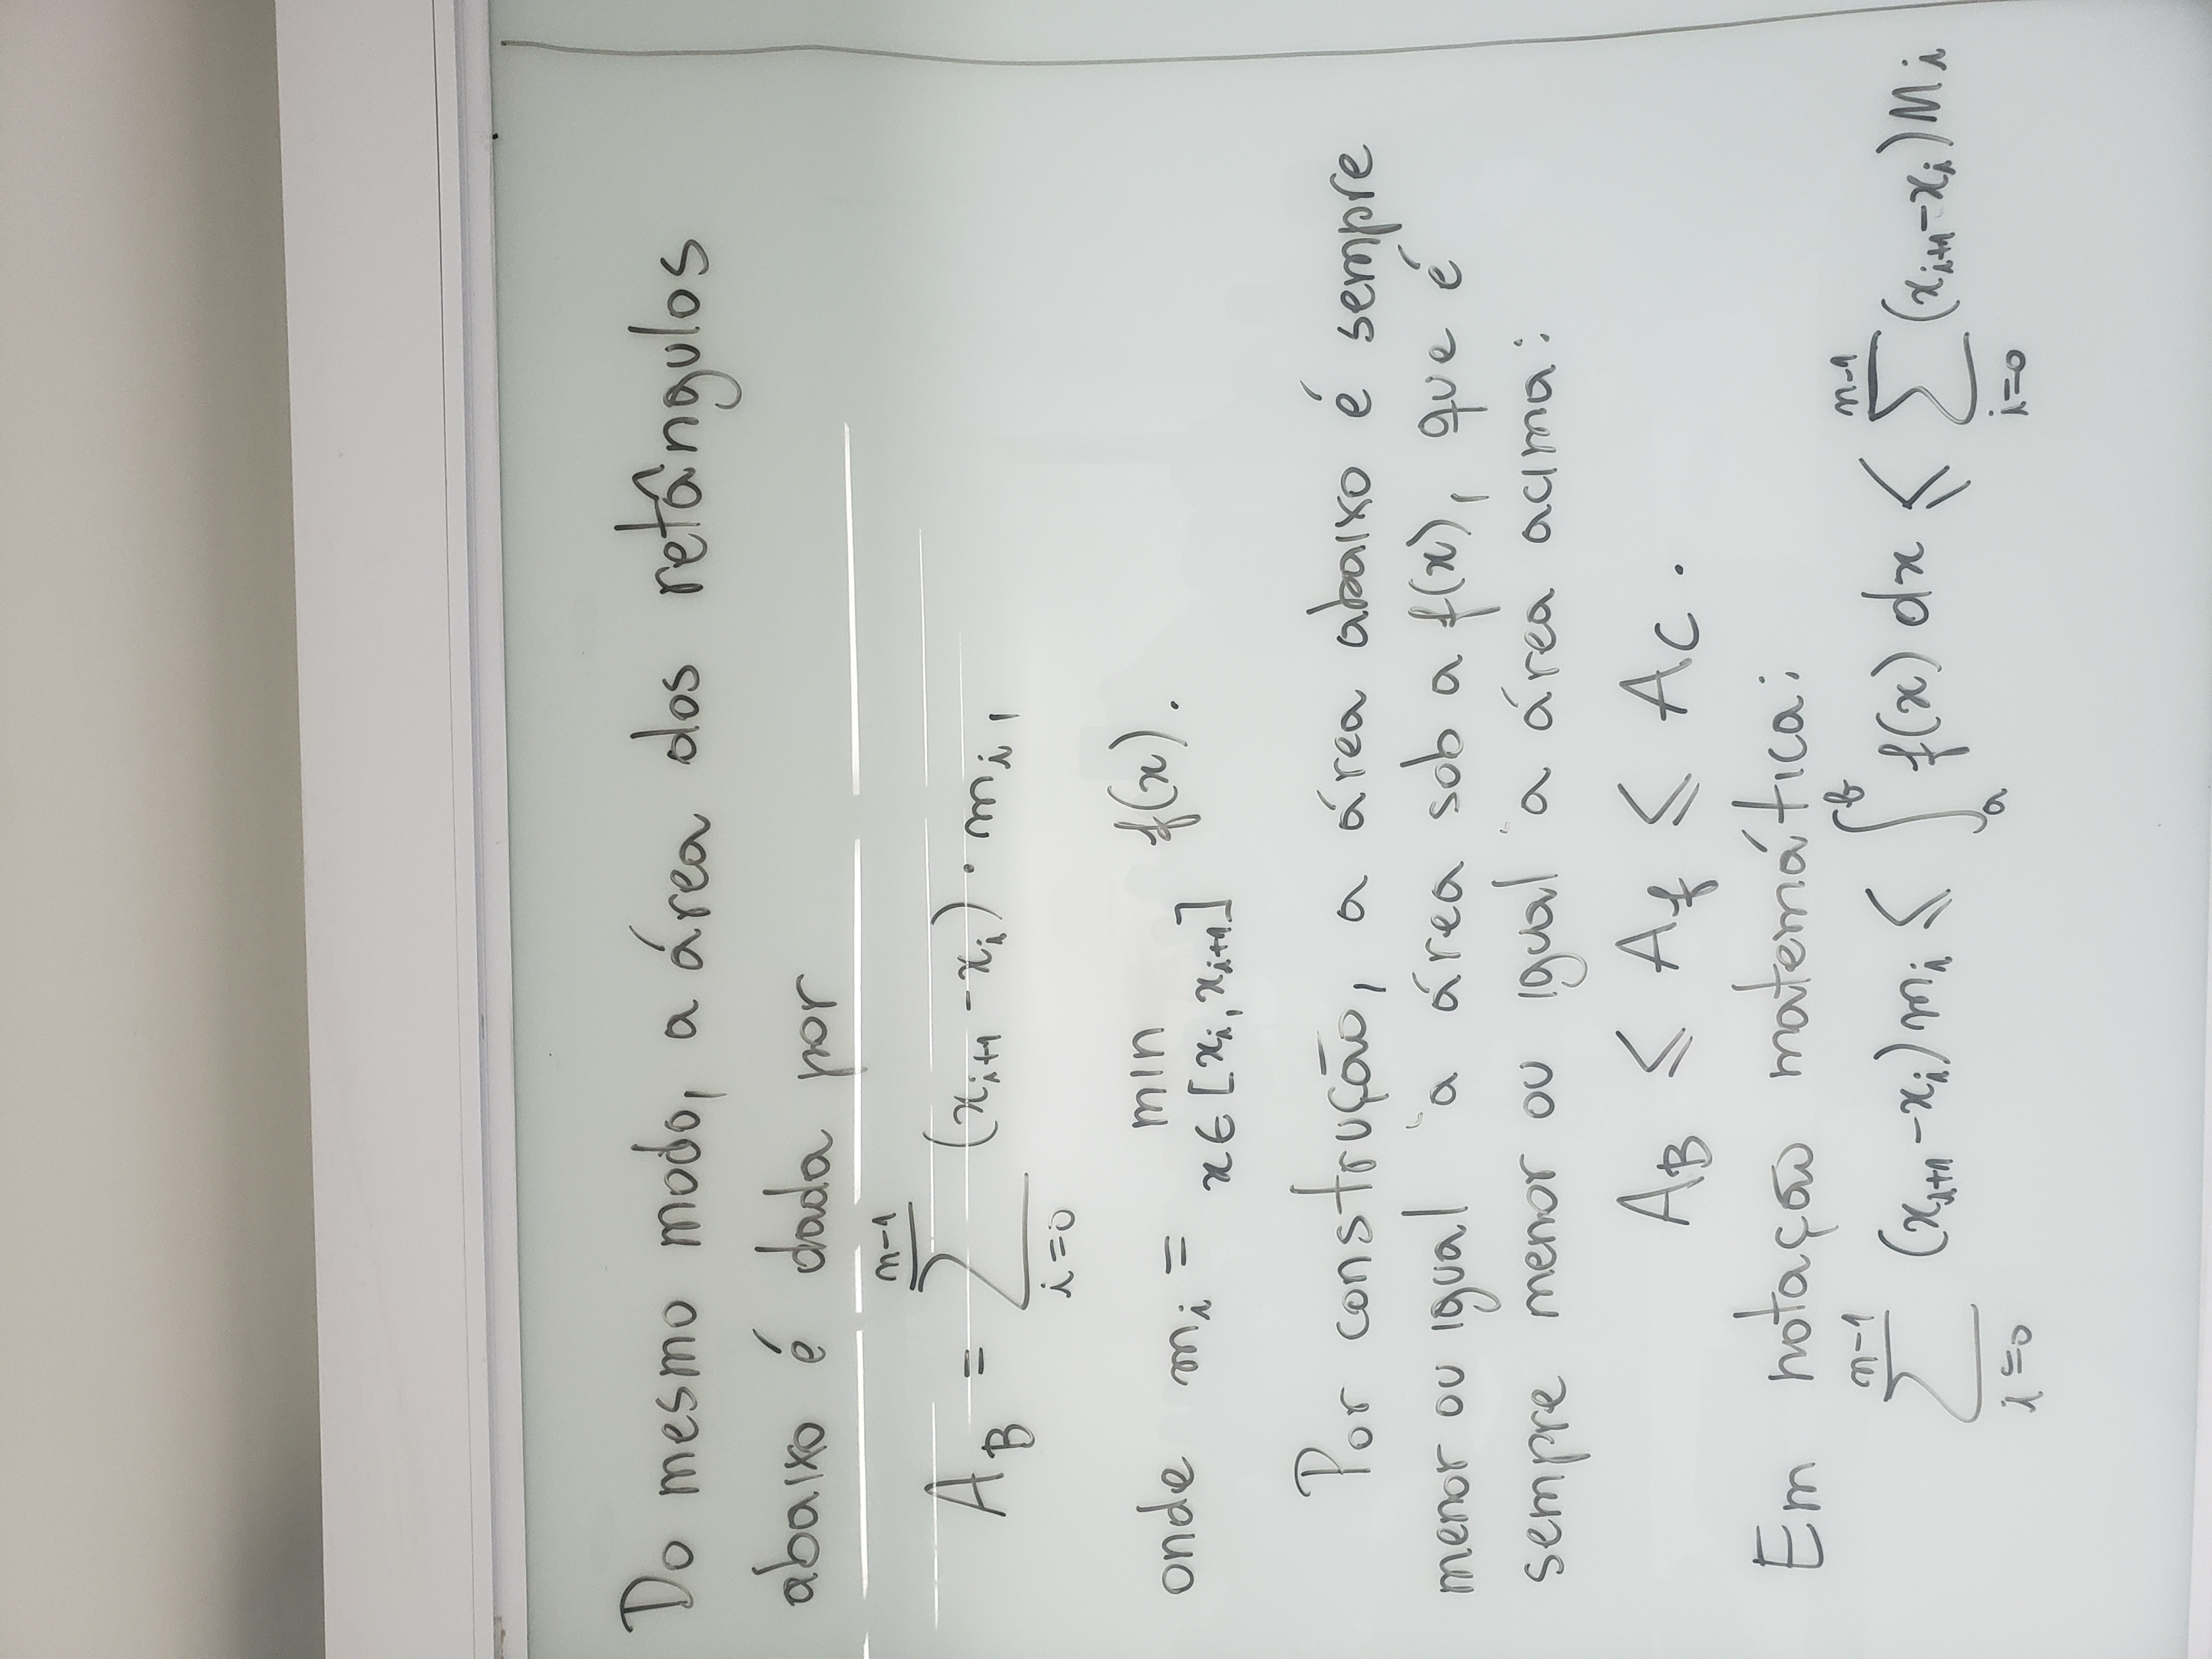 Do mesmo modo, a área dos retângulos
abaixo é dada por
A_B = \sum_{i=0}^{n-1} (x_{i+1} - x_i) · m_i,
onde m_i = min_{x ∈ [x_i, x_{i+1}]} f(x).
Por construção, a área abaixo é sempre
menor ou igual à área sob a f(x), que é
sempre menor ou igual à área acima:
A_B ⩽ A_f ⩽ A_C.
Em notação matemática:
\sum_{i=0}^{n-1} (x_{i+1} - x_i) m_i ⩽ \int_a^b f(x) dx ⩽ \sum_{i=0}^{n-1} (x_{i+1} - x_i) M_i